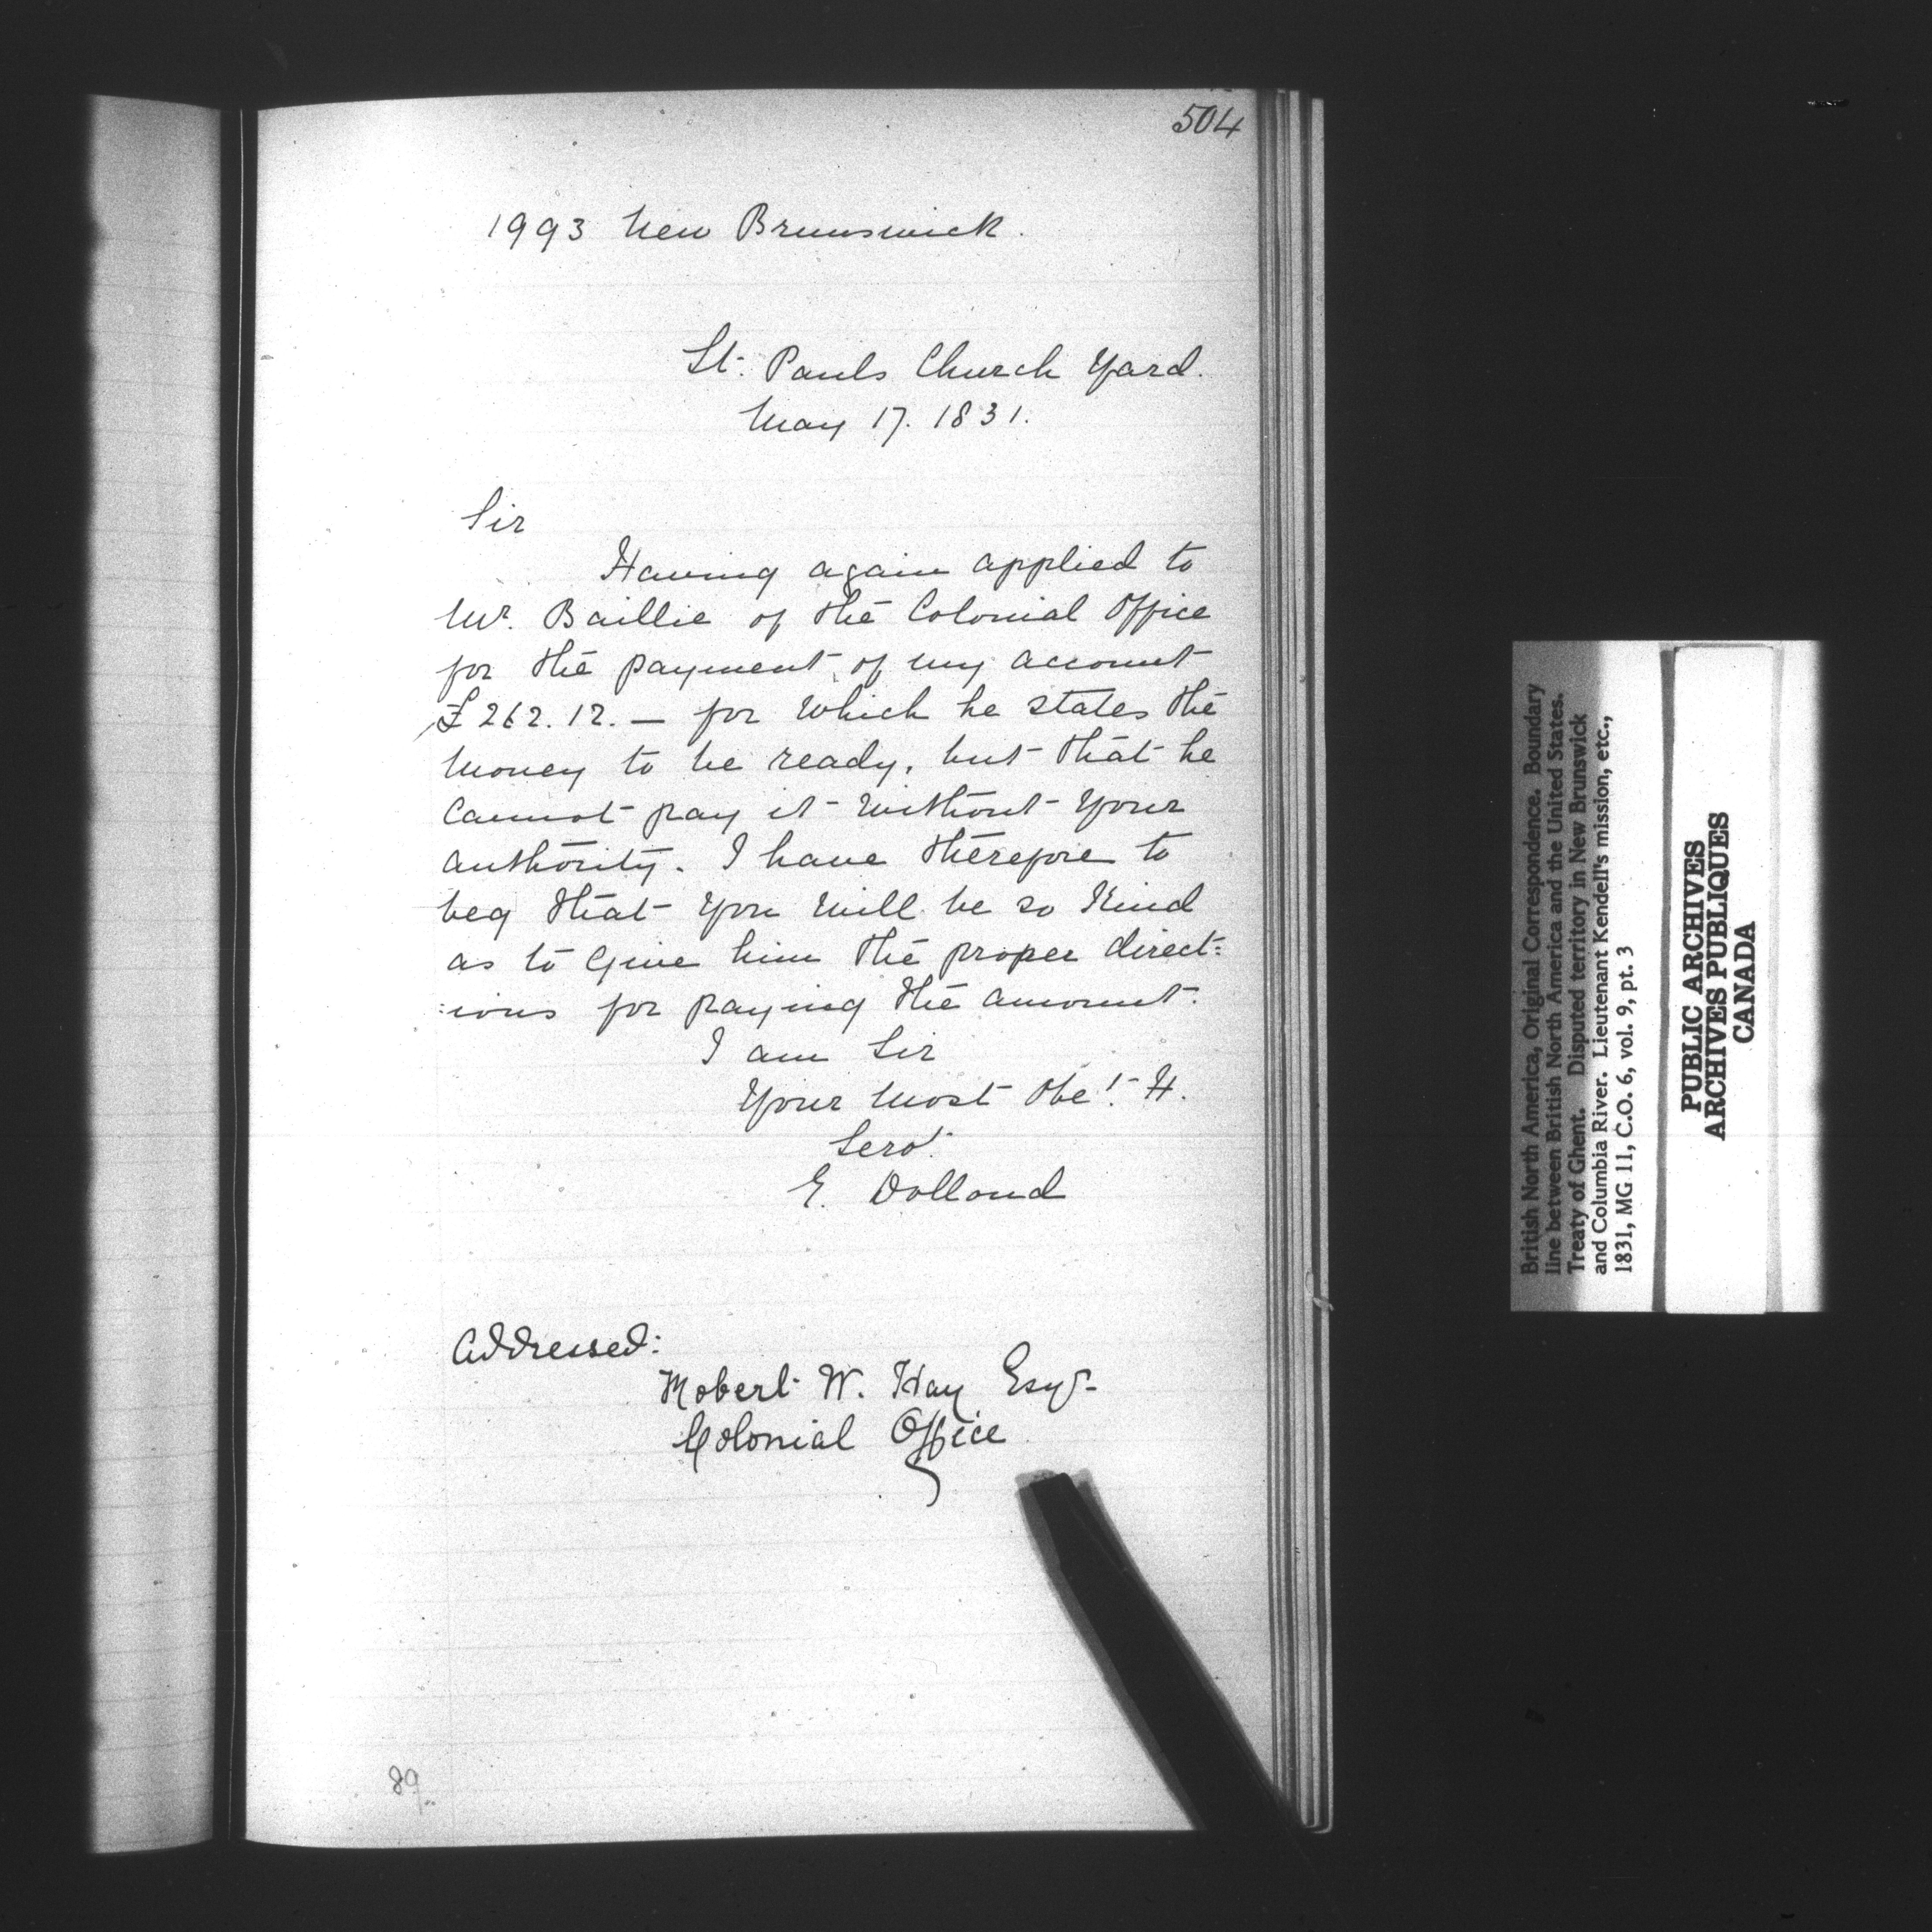 504
1993 New Brunswick.
St. Pauls Church Yard.
May 17. 1831.
Sir
Having again applied to
Mr. Baillie of the Colonial Office
for the payment of my account
£262.12.— for which he states the
money to be ready, but that he
cannot pay it without your
authority. I have therefore to
beg that you will be so kind
as to give him the proper direct:
:ions for paying the amount.
I am Sir
Your most Obet. H.
Servt.
G. Dollond
Addressed:
Robert W. Hay Esqr.
Colonial Office
89
British North America, Original Correspondence. Boundary
line between British North America and the United States.
Treaty of Ghent. Disputed territory in New Brunswick
and Columbia River. Lieutenant Kendell's mission, etc.,
1831, MG 11, C.O. 6, vol. 9, pt. 3
PUBLIC ARCHIVES
ARCHIVES PUBLIQUES
CANADA